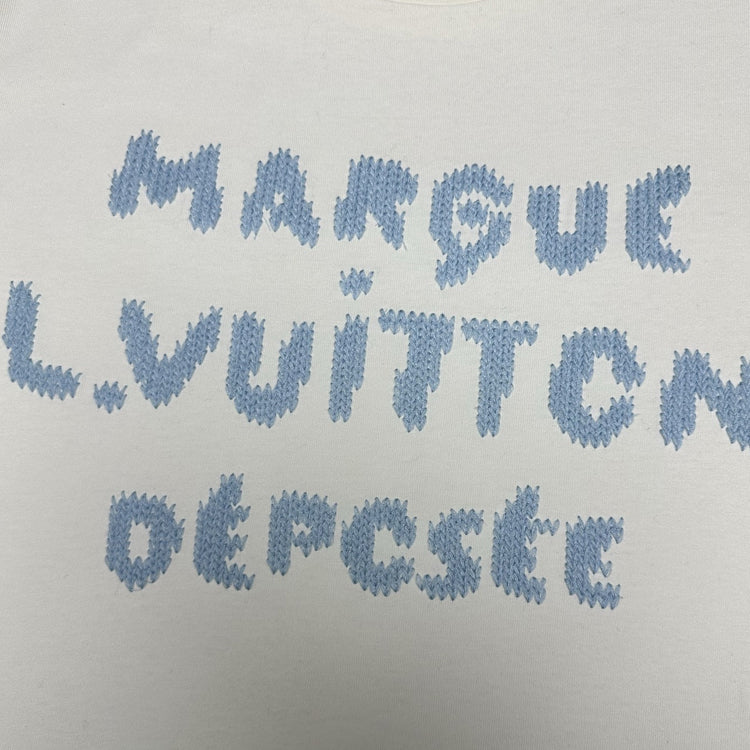 MARQUE
L.VUiTTON
DÉPOSÉE